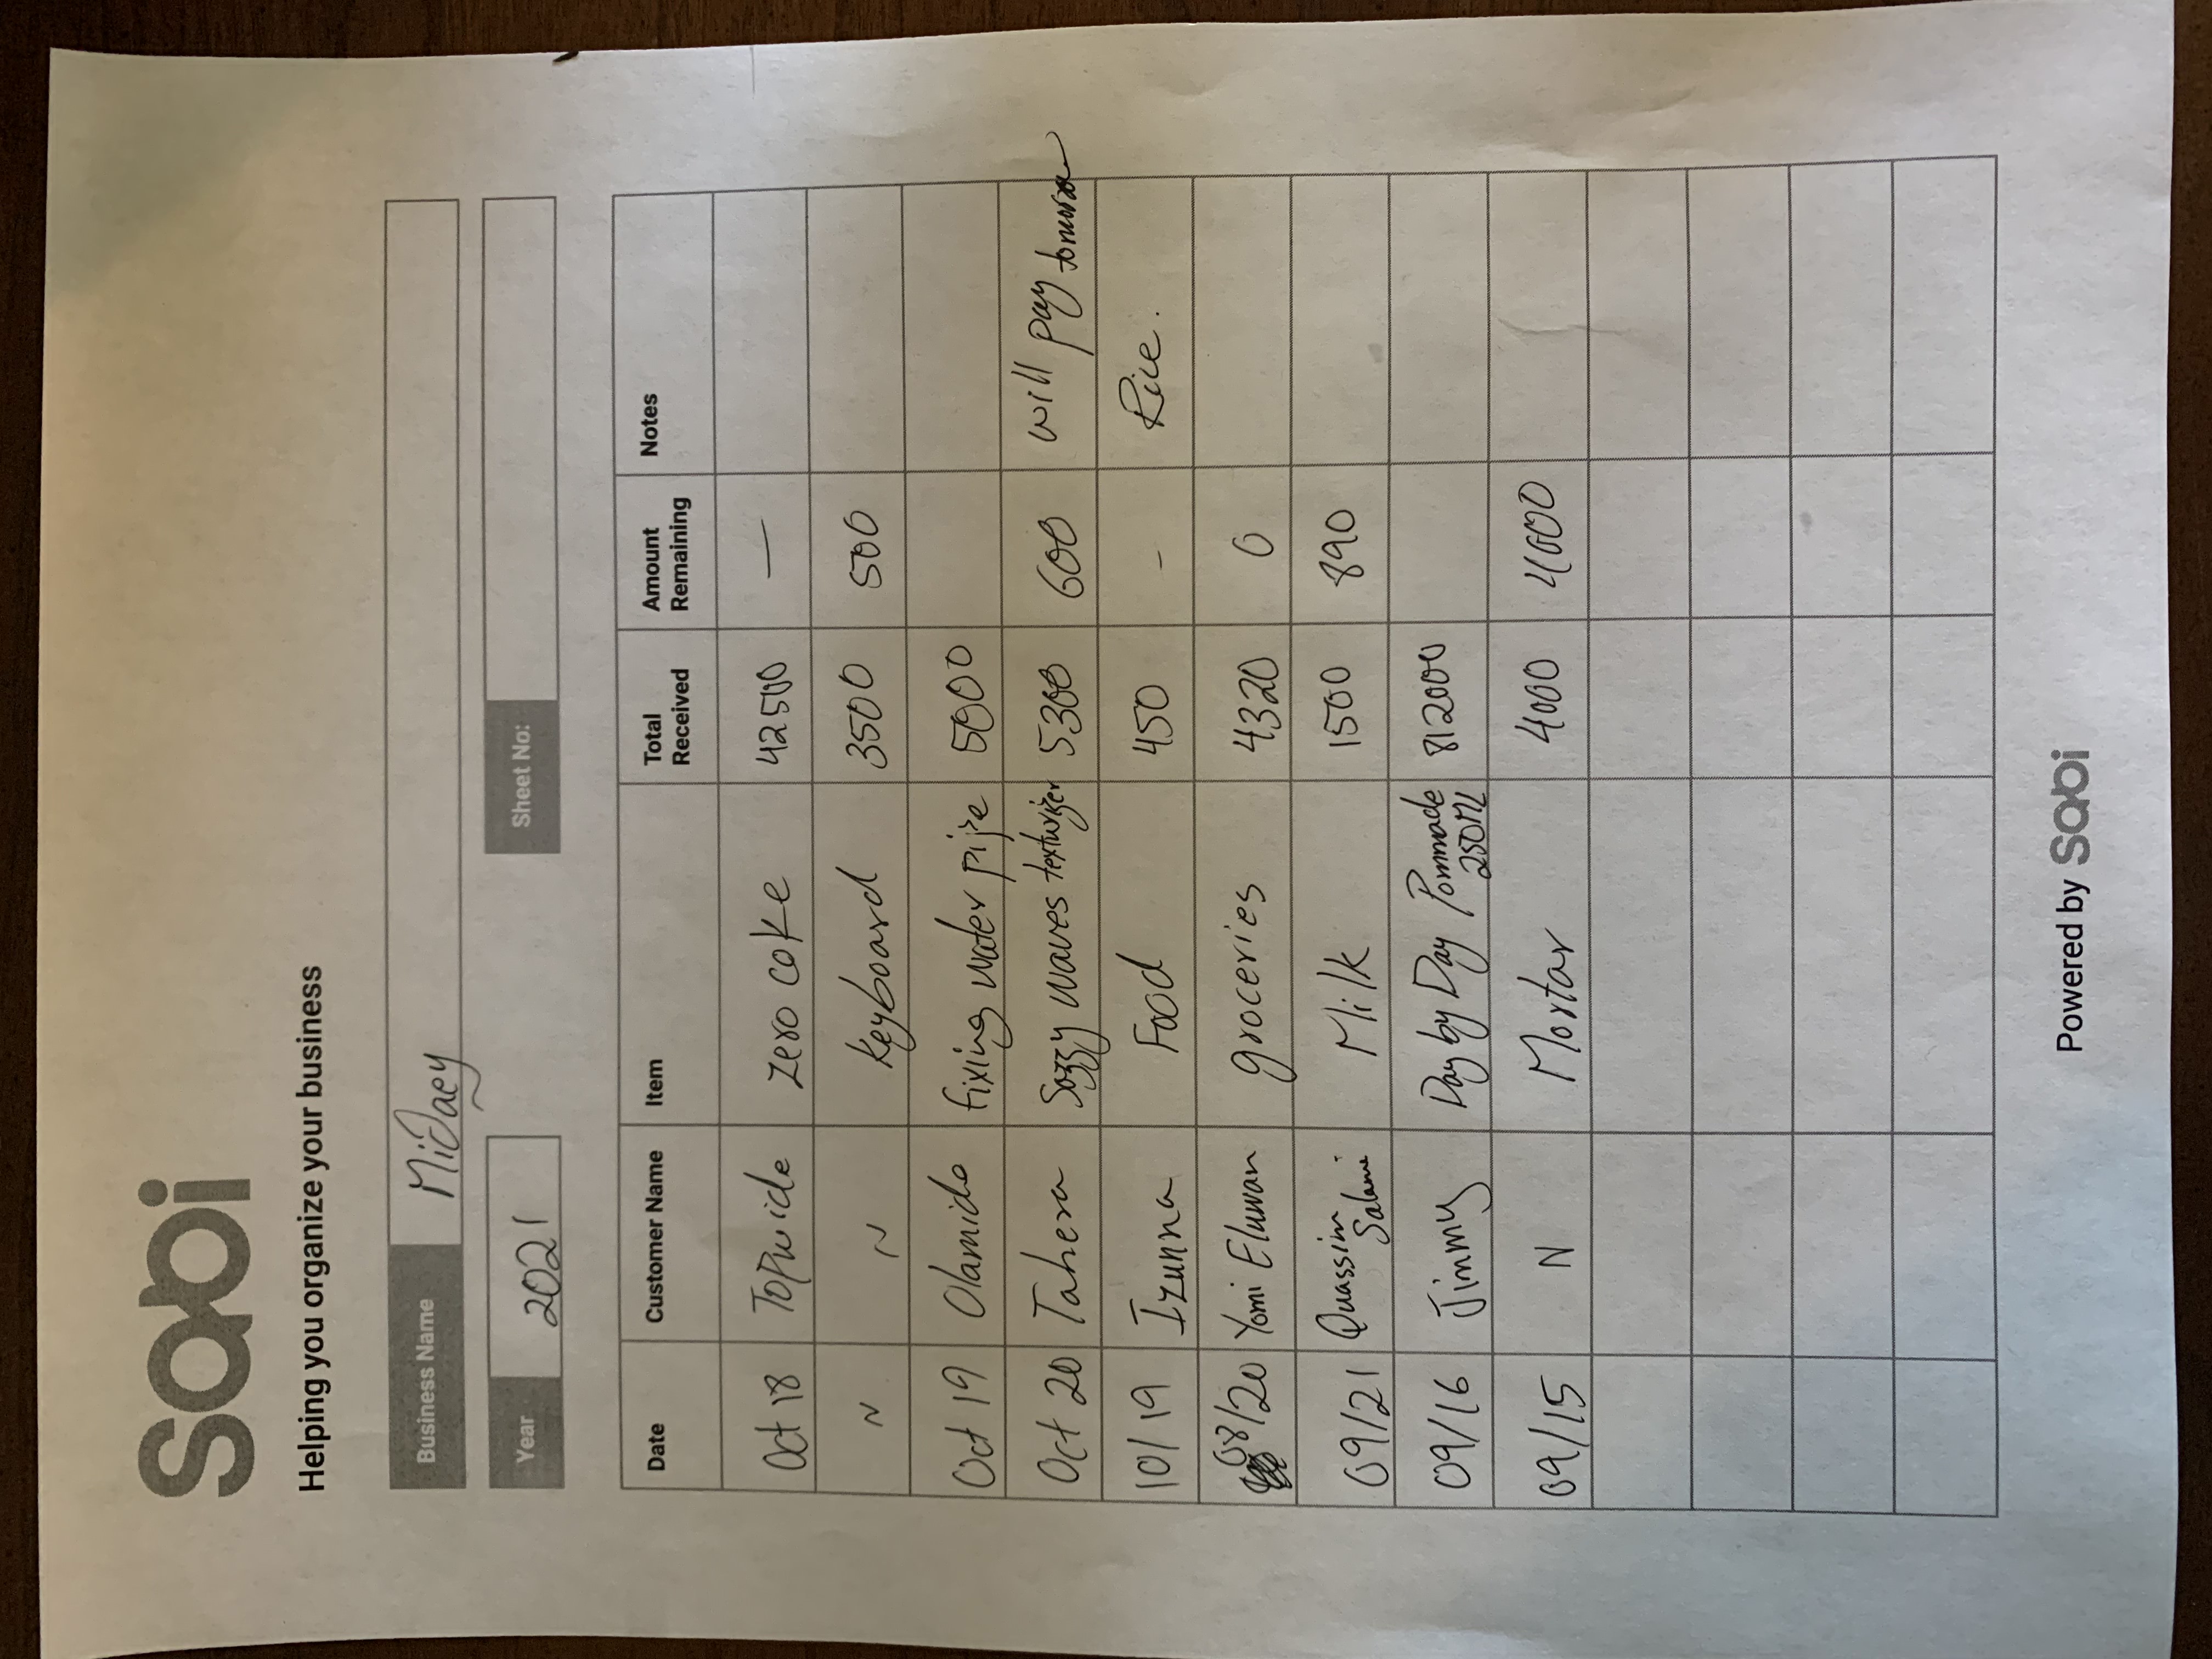 Sabi
Helping you organize your business
Business Name MiJaey
Year 2021 Sheet No:
Date Customer Name Item Total Received Amount Remaining Notes
Oct 18 Topwide zero coke 42500 —
~ ~ keyboard 3500 500
Oct 19 Olamide fixing water pipe 5000
Oct 20 Tahera Sozzy waves texturizer 5300 600 will pay tomorrow
10/19 Izunna Food 450 - Rice.
08/20 Yomi Eluwan groceries 4320 0
09/21 Quassim Salami Milk 1500 890
09/16 Jimmy Day by Day Pommade 250ML 812000
09/15 N Mortar 4000 4000
Powered by Sabi